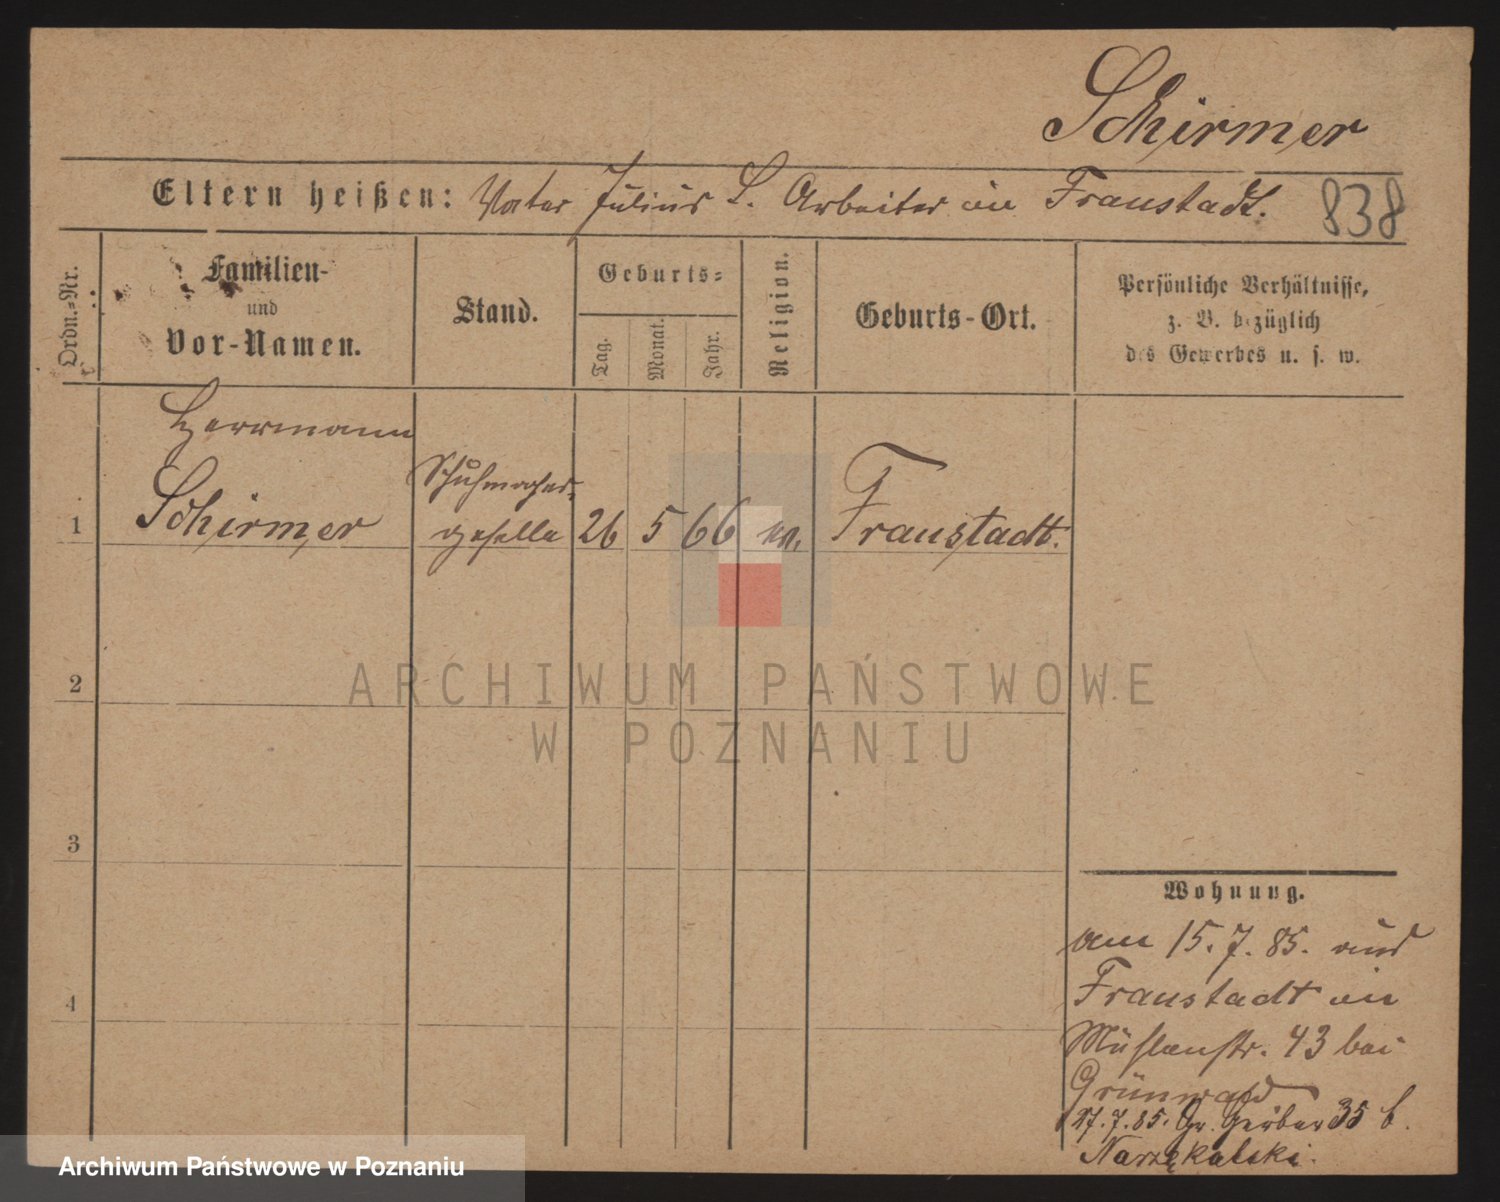 Schirmer
Eltern heißen: Vater Julius S. Arbeiter in Fraustadt. 838
Ordn.-Nr.
Familien-
und
Vor-Namen.
Stand.
Geburts-
Tag.
Monat.
Jahr.
Religion.
Geburts-Ort.
Persönliche Verhältnisse,
z. B. bezüglich
des Gewerbes u. s. w.
Herrmann
Schuhmacher-
1 Schirmer geselle 26 5 66 ev. Fraustadt.
2
3
4
Wohnung.
am 15. 7. 85. aus
Fraustadt in
Mühlenstr. 43 bei
Grünwald
27. 7. 85. Gr. Gerber 35 b.
Narzękalski.
ARCHIWUM PAŃSTWOWE
W POZNANIU
Archiwum Państwowe w Poznaniu